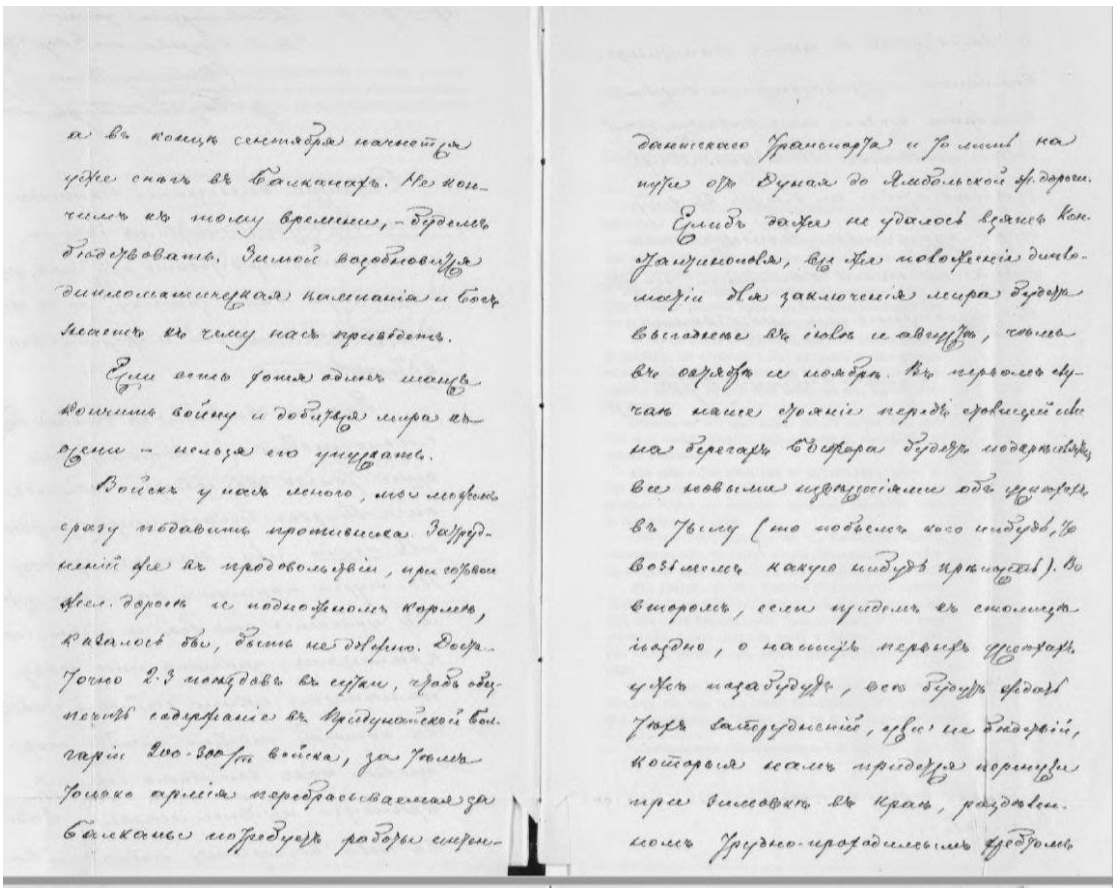 а въ концѣ сентября начнется
уже снѣгъ въ Балканахъ. Не кон-
чимъ къ тому времени, – будемъ
бѣдствовать. Зимой возобновится
дипломатическая кампанія и Богъ
знаетъ къ чему насъ приведетъ.
Если есть хотя одинъ шансъ
кончить войну и добиться мира къ
осени – нельзя его упускать.
Войскъ у насъ много, мы можемъ
сразу подавить противника. Затруд-
неній же въ продовольствіи, при готовой
жел. дорогѣ и подножномъ кормѣ,
казалось бы, быть не должно. Доста-
точно 2-3 поѣздовъ въ сутки, чтобъ обез-
печить содержаніе въ Придунайской Бол-
гаріи 200-300/т войска, за тѣмъ
только армія перебрасываемая за
Балканы потребуетъ работы интен-
дантскаго транспорта и то лишь на
пути отъ Дуная до Ямбольской ж. дороги.
Еслибъ даже не удалось взять Кон-
стантинополя, все же положеніе дипло-
матіи для заключенія мира будетъ
выгоднѣе въ іюлѣ и августѣ, чѣмъ
въ октябрѣ и ноябрѣ. Въ первомъ слу-
чаѣ наше стояніе передъ столицей или
на берегахъ Босфора будетъ подкрѣпляться
все новыми извѣстіями объ успѣхахъ
въ тылу (то побьемъ кого нибудь, то
возьмемъ какую нибудь крѣпость). Во
второмъ, если придемъ къ столицѣ
поздно, о нашихъ первыхъ успѣхахъ
уже позабудутъ, всѣ будутъ ждать
тѣхъ затрудненій, если не бѣдствій,
которыя намъ придется вернуться
при зимовкѣ въ краѣ, раздѣлен-
номъ трудно-проходимымъ хребтомъ